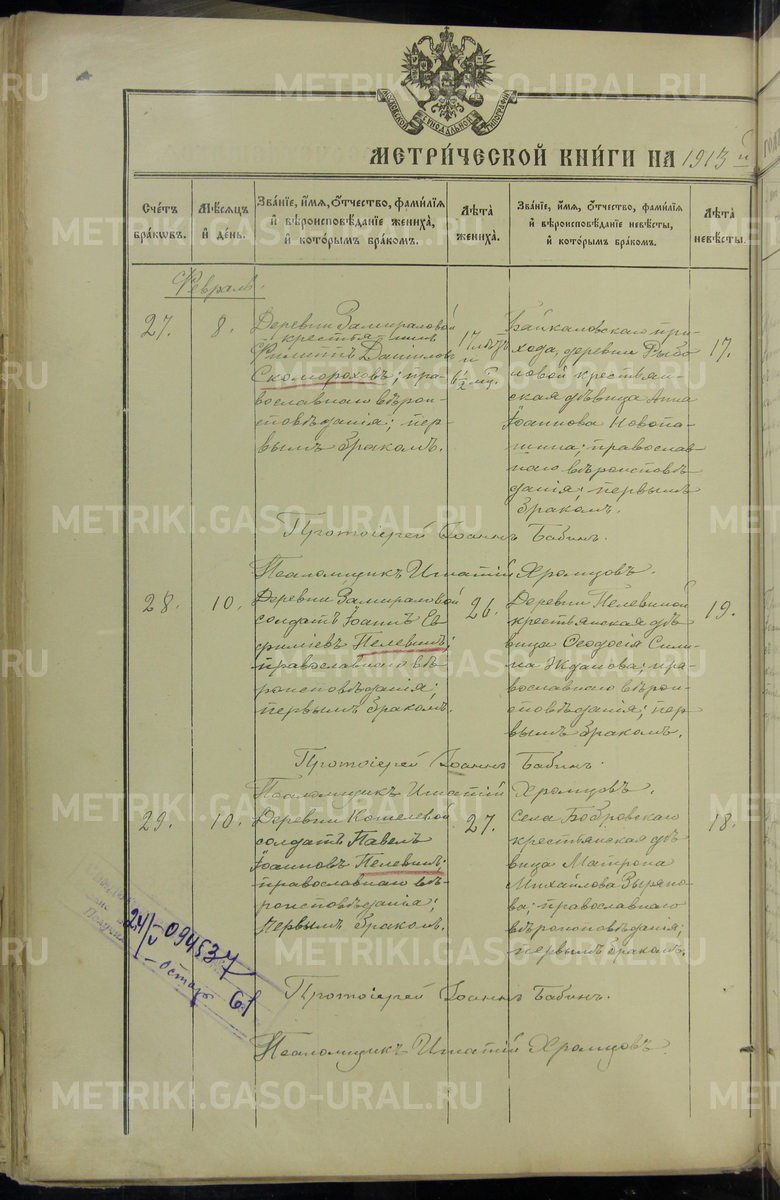 МЕТРИ́ЧЕСКОЙ КНИ́ГИ НА 1913 й
Сче́тъ бра́ковъ.
Мѣ́сяцъ и҆ де́нь.
Зва́нїе, и҆́мя, ѻ҆́тчество, фами́лїя и҆ вѣроисповѣ́данїе жениха̀, и҆ кото́рымъ бра́комъ.
Лѣ́та жениха̀.
Зва́нїе, и҆́мя, ѻ҆́тчество, фами́лїя и҆ вѣроисповѣ́данїе невѣ́сты, и҆ кото́рымъ бра́комъ.
Лѣ́та невѣ́сты.
Февраль.
27.
8.
Деревни Замираловой
крестьянинъ
Филиппъ Даніиловъ
Скомороховъ; пра-
вославнаго вѣрои-
сповѣданія; пер-
вымъ бракомъ.
17 лѣтъ
и
6½ мц.
Байкаловскаго при-
хода, деревни Рыбо
ловой крестьян-
ская дѣвица Анна
Іоаннова Новопа-
шина; православ-
наго вѣроисповѣ-
данія; первымъ
бракомъ.
17.
Протоіерей Іоаннъ Бабинъ.
Псаломщикъ Игнатій Хромцовъ.
28.
10.
Деревни Замираловой
солдатъ Іоаннъ Ев-
фиміевъ Пелевинъ;
православнаго вѣ-
роисповѣданія;
первымъ бракомъ.
26.
Деревни Пелевиной
крестьянская дѣ-
вица Ѳеодосія Сили-
на Жданова; пра-
вославнаго вѣрои-
сповѣданія; пер-
вымъ бракомъ.
19.
Протоіерей Іоаннъ Бабинъ.
Псаломщикъ Игнатій Хромцовъ.
29.
10.
Деревни Кошелевой
солдатъ Павелъ
Іоанновъ Пелевинъ;
православнаго вѣ-
роисповѣданія;
первымъ бракомъ.
27.
Села Бобровскаго
крестьянская дѣ-
вица Матрона
Михайлова Зыряно-
ва; православнаго
вѣроисповѣданія;
первымъ бракомъ.
18.
Протоіерей Іоаннъ Бабинъ.
Псаломщикъ Игнатій Хромцовъ.
24/V 094537
61
METRIKI.GASO-URAL.RU